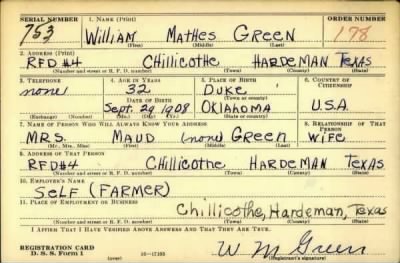 SERIAL NUMBER 1. NAME (Print) ORDER NUMBER
753 William Mathes Green 178
(First) (Middle) (Last)
2. ADDRESS (Print)
RFD #4 Chillicothe Hardeman Texas
(Number and street or R. F. D. number) (Town) (County) (State)
3. TELEPHONE 4. AGE IN YEARS 5. PLACE OF BIRTH 6. COUNTRY OF CITIZENSHIP
none 32 Duke
DATE OF BIRTH (Town or county)
Sept. 29 1908 Oklahoma U.S.A.
(Exchange) (Number) (Mo.) (Day) (Yr.) (State or country)
7. NAME OF PERSON WHO WILL ALWAYS KNOW YOUR ADDRESS 8. RELATIONSHIP OF THAT PERSON
Mrs. Maud (none) Green Wife
(Mr., Mrs., Miss) (First) (Middle) (Last)
9. ADDRESS OF THAT PERSON
RFD #4 Chillicothe Hardeman Texas
(Number and street or R. F. D. number) (Town) (County) (State)
10. EMPLOYER'S NAME
Self (Farmer)
11. PLACE OF EMPLOYMENT OR BUSINESS
Chillicothe, Hardeman, Texas
(Number and street or R. F. D. number) (Town) (County) (State)
I AFFIRM THAT I HAVE VERIFIED ABOVE ANSWERS AND THAT THEY ARE TRUE.
REGISTRATION CARD
D. S. S. Form 1 (over) W M Green
(Registrant's signature)